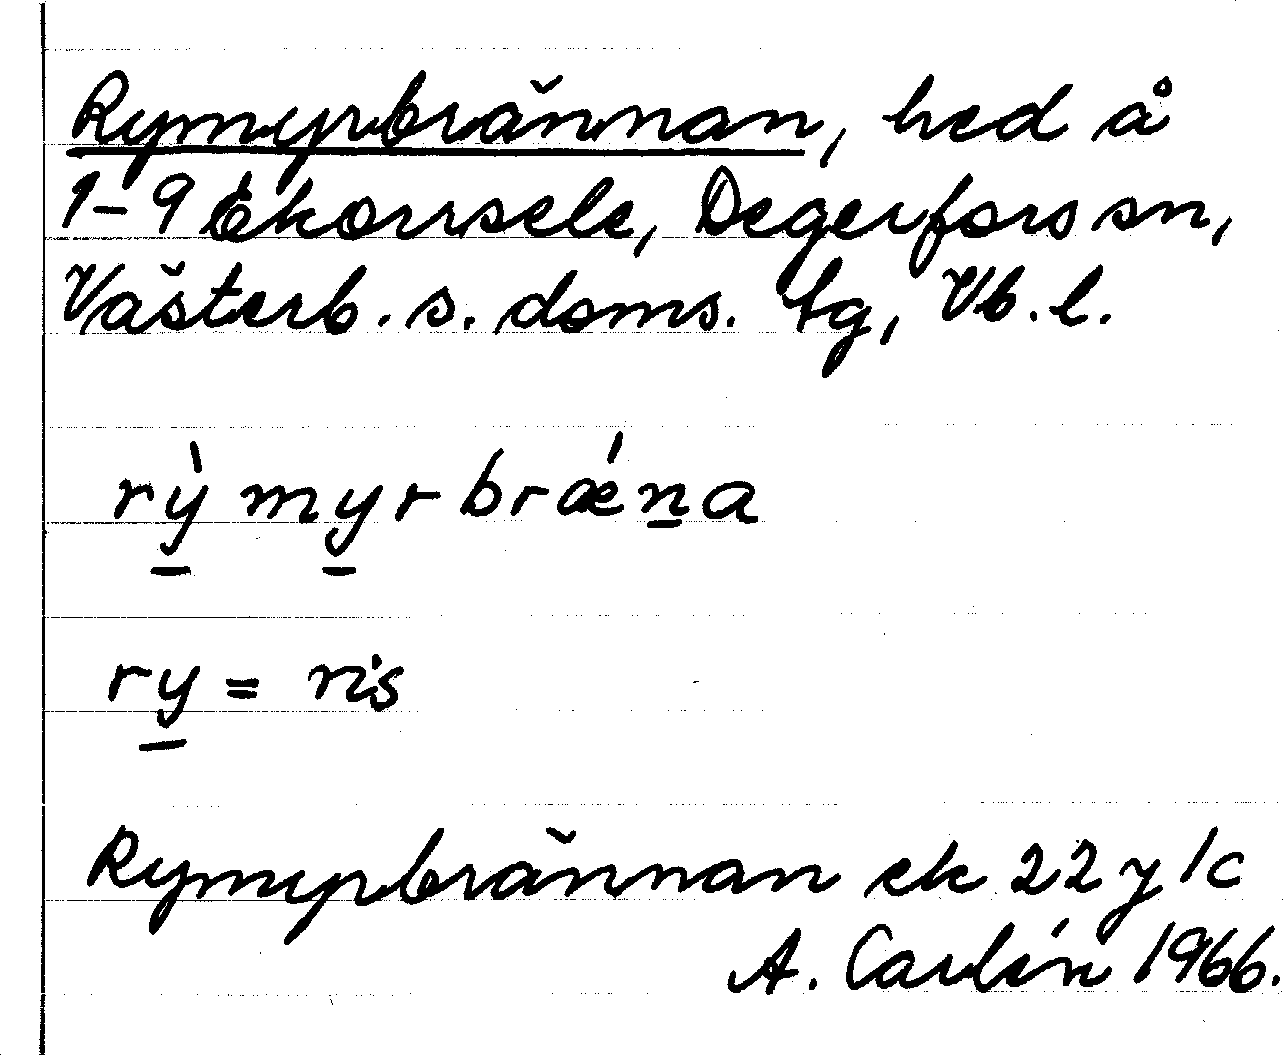 Rymyrbrännan, hed å
1-9 Ekorrsele, Degerfors sn,
Västerb. s. doms. tg, Vb. l.
rỳmyrbrǽna
ry = ris
Rymyrbrännan ek 22 y 1c
A. Carlén 1966.